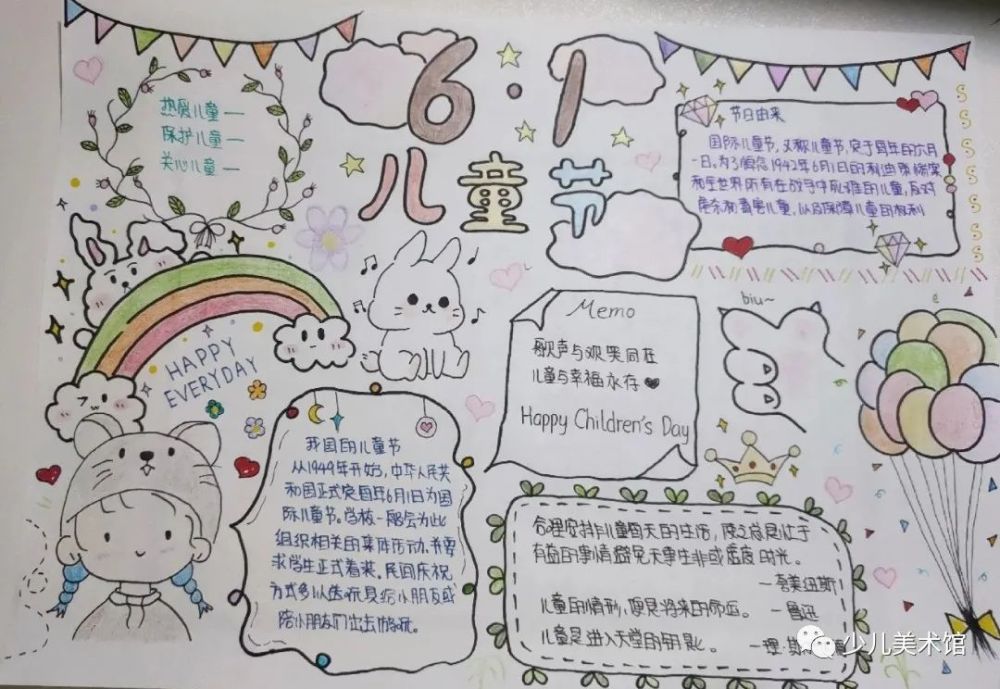 6·1
儿童节
热爱儿童—
保护儿童—
关心儿童—
节日由来
国际儿童节,又称儿童节,定于每年的六月
一日。为了悼念1942年6月1日的利迪策惨案
和全世界所有在战争中死难的儿童,反对
虐杀和毒害儿童,以及保障儿童的权利
HAPPY
EVERYDAY
Memo
歌声与欢笑同在
儿童与幸福永存
Happy Children's Day
biu~
我国的儿童节
从1949年开始,中华人民共
和国正式定每年6月1日为国
际儿童节。学校一般会为此
组织相关的集体活动,并要
求学生正式着装。民间庆祝
方式多以送玩具给小朋友或
陪小朋友们出去
合理安排儿童每天的生活,使之总是忙于
有益的事情,避免无事生非或虚度时光。
—夸美纽斯
儿童的情形,便是将来的命运。—鲁迅
儿童是进入天堂的钥匙。—理·斯
少儿美术馆